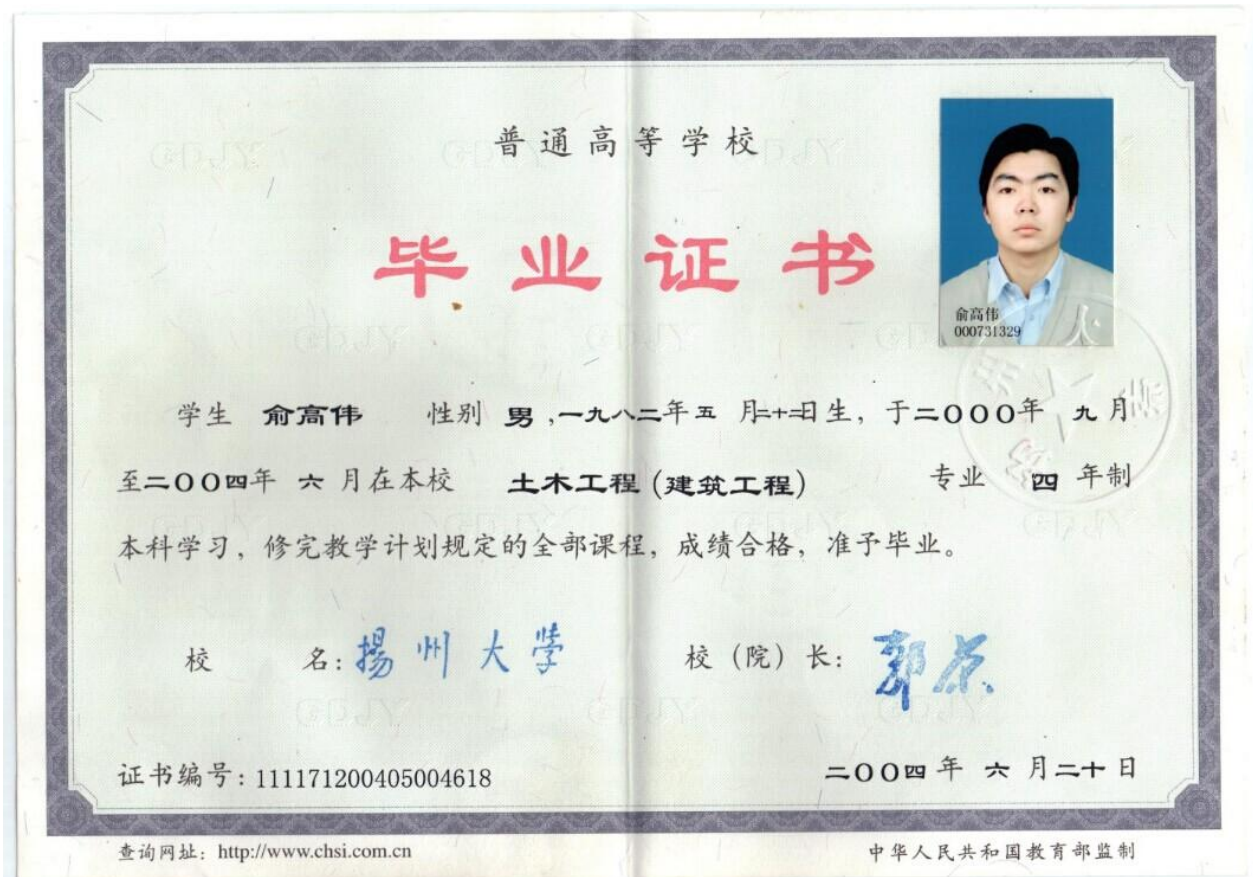 普通高等学校
毕业证书
俞高伟
000731329
学生 俞高伟 性别 男,一九八二年五 月二十二日生，于二〇〇〇年 九月
至二〇〇四年 六 月在本校 土木工程(建筑工程) 专业 四 年制
本科学习，修完教学计划规定的全部课程，成绩合格，准予毕业。
校 名：揚州大学 校（院）长：
证书编号：111171200405004618 二〇〇四年 六 月二十日
查询网址：http://www.chsi.com.cn 中华人民共和国教育部监制